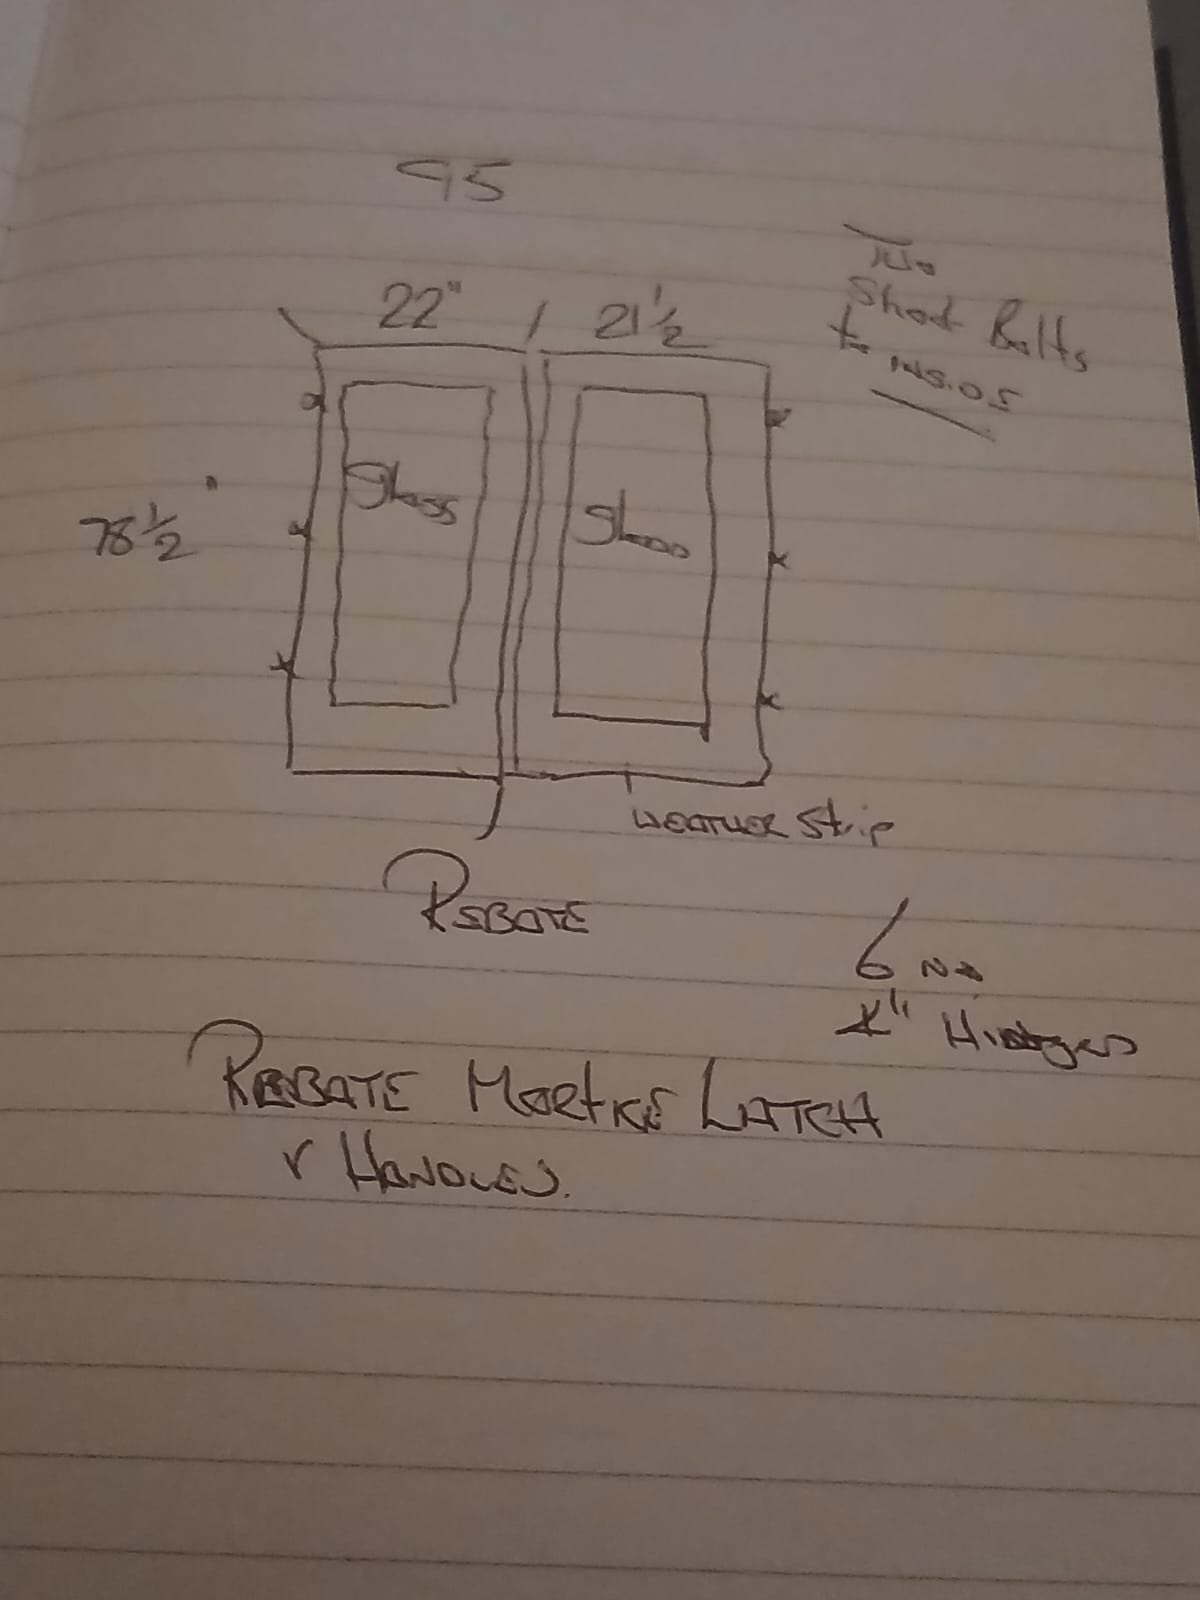 95
Two
Short Bolts
to INSIDE
22" 21½
78½"
Glass
Glass
WEATHER Strip
REBATE
6 No
4" Hinges
REBATE MORTICE LATCH
& HANDLES.